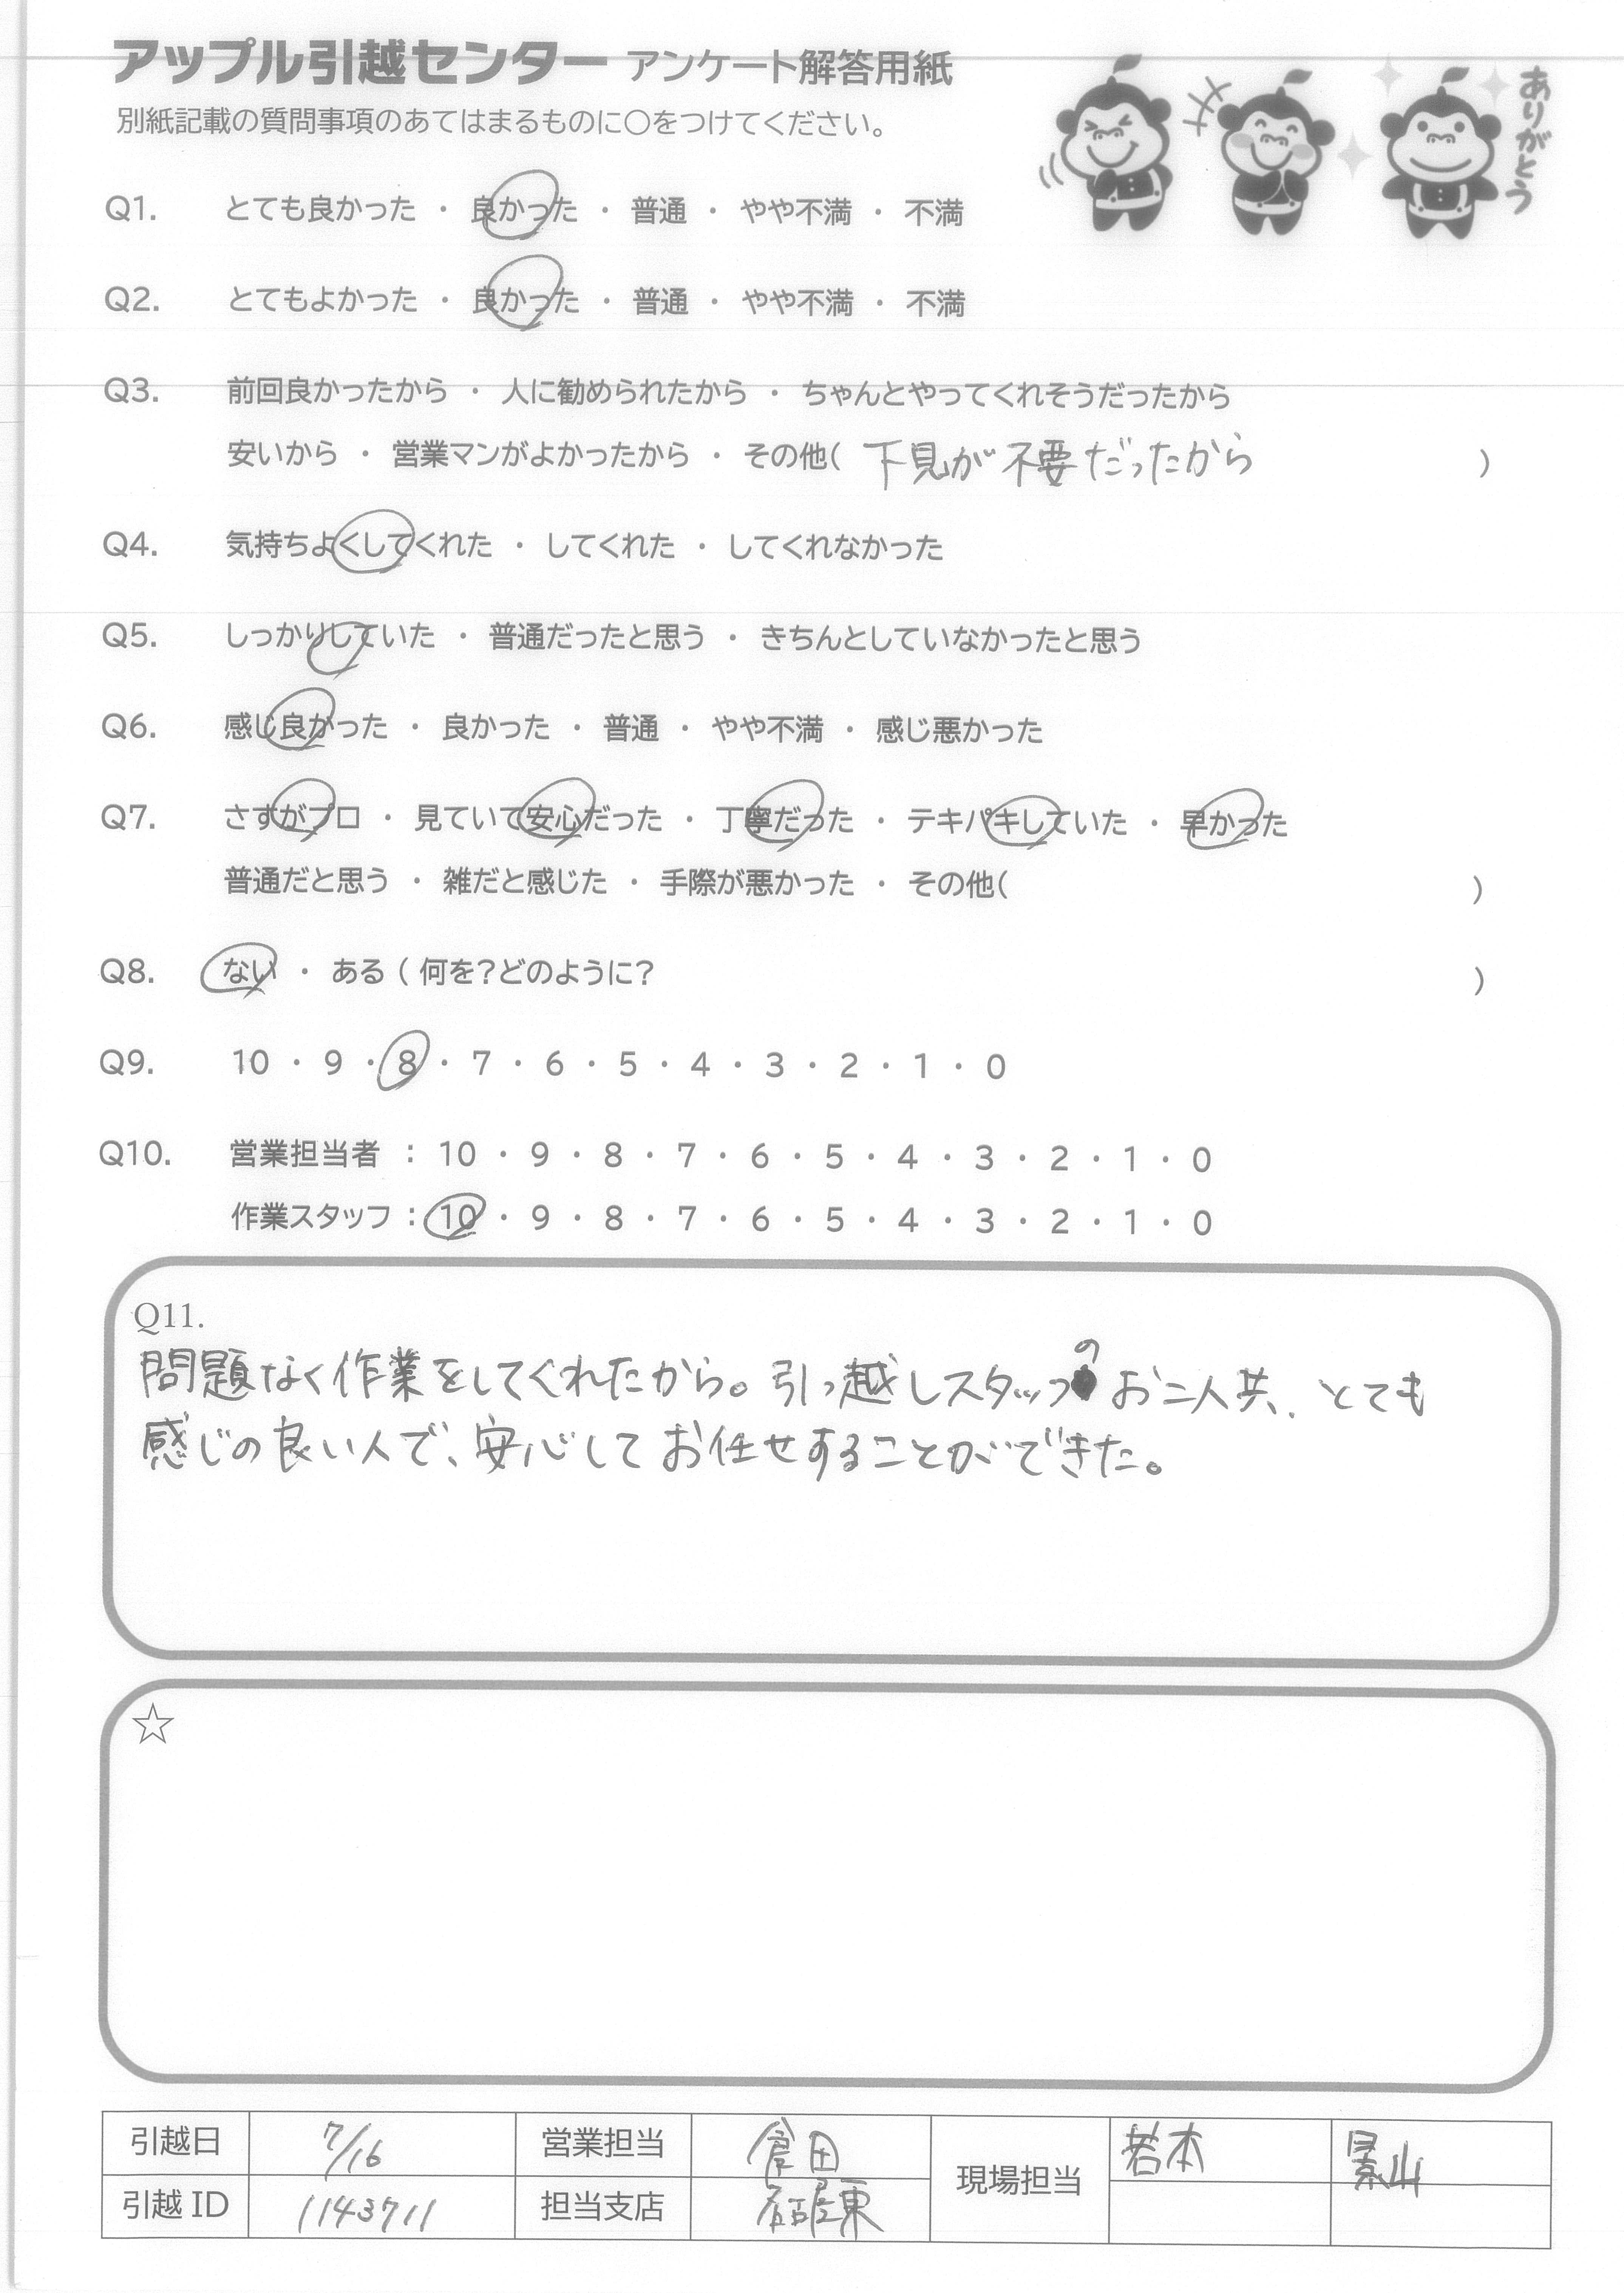 アップル引越センター アンケート解答用紙
ありがとう
別紙記載の質問事項のあてはまるものに〇をつけてください。
Q1. とても良かった ・ 良かった ・ 普通 ・ やや不満 ・ 不満
Q2. とてもよかった ・ 良かった ・ 普通 ・ やや不満 ・ 不満
Q3. 前回良かったから ・ 人に勧められたから ・ ちゃんとやってくれそうだったから
安いから ・ 営業マンがよかったから ・ その他( 下見が不要だったから )
Q4. 気持ちよくしてくれた ・ してくれた ・ してくれなかった
Q5. しっかりしていた ・ 普通だったと思う ・ きちんとしていなかったと思う
Q6. 感じ良かった ・ 良かった ・ 普通 ・ やや不満 ・ 感じ悪かった
Q7. さすがプロ ・ 見ていて安心だった ・ 丁寧だった ・ テキパキしていた ・ 早かった
普通だと思う ・ 雑だと感じた ・ 手際が悪かった ・ その他( )
Q8. ない ・ ある ( 何を?どのように? )
Q9. 10 ・ 9 ・ 8 ・ 7 ・ 6 ・ 5 ・ 4 ・ 3 ・ 2 ・ 1 ・ 0
Q10. 営業担当者 : 10 ・ 9 ・ 8 ・ 7 ・ 6 ・ 5 ・ 4 ・ 3 ・ 2 ・ 1 ・ 0
作業スタッフ : 10 ・ 9 ・ 8 ・ 7 ・ 6 ・ 5 ・ 4 ・ 3 ・ 2 ・ 1 ・ 0
Q11.
問題なく作業をしてくれたから。引っ越しスタッフのお二人共、とても
感じの良い人で、安心してお任せすることができた。
☆
引越日 7/16 営業担当 倉田 現場担当 若本 景山
引越 ID 1143711 担当支店 名古屋東